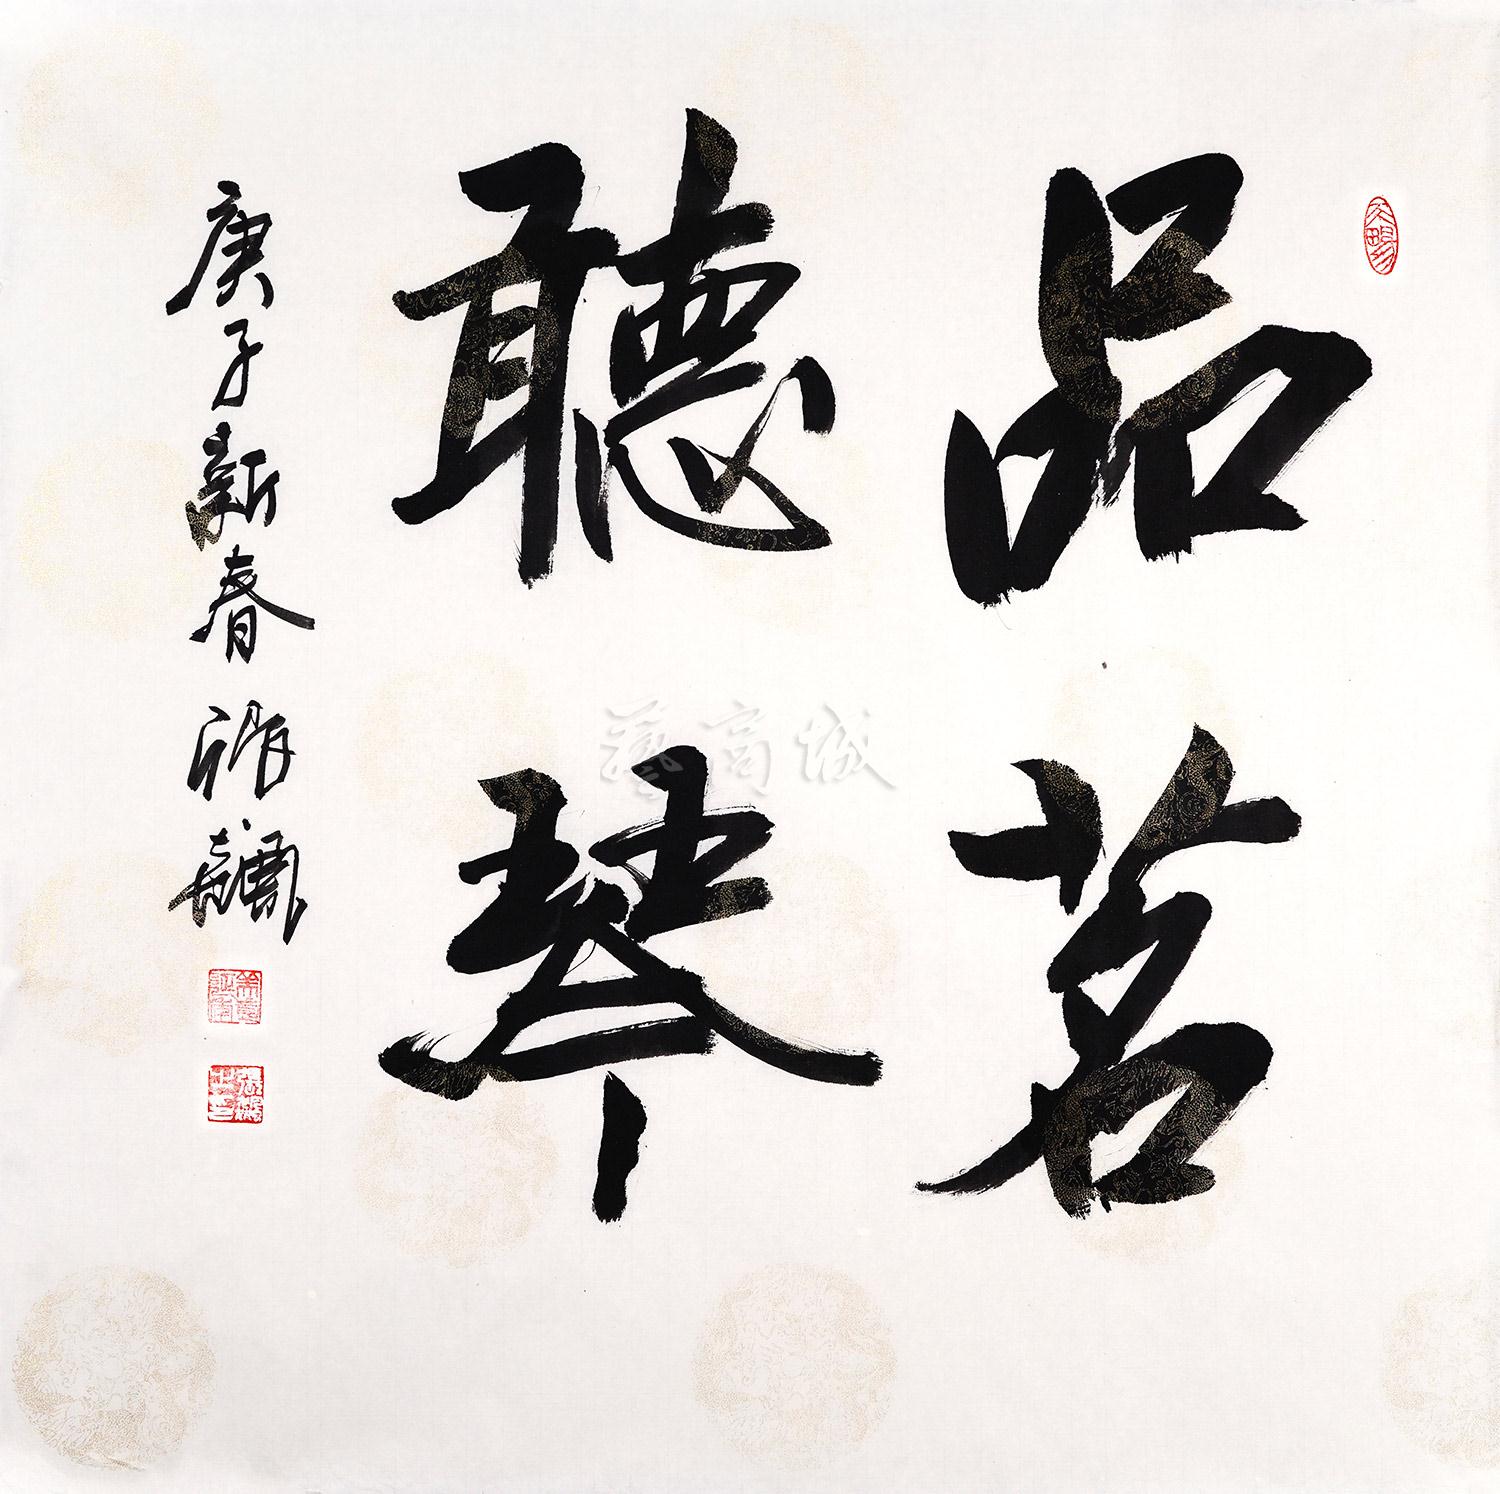 品茗
聽琴
庚子新春
藝高城